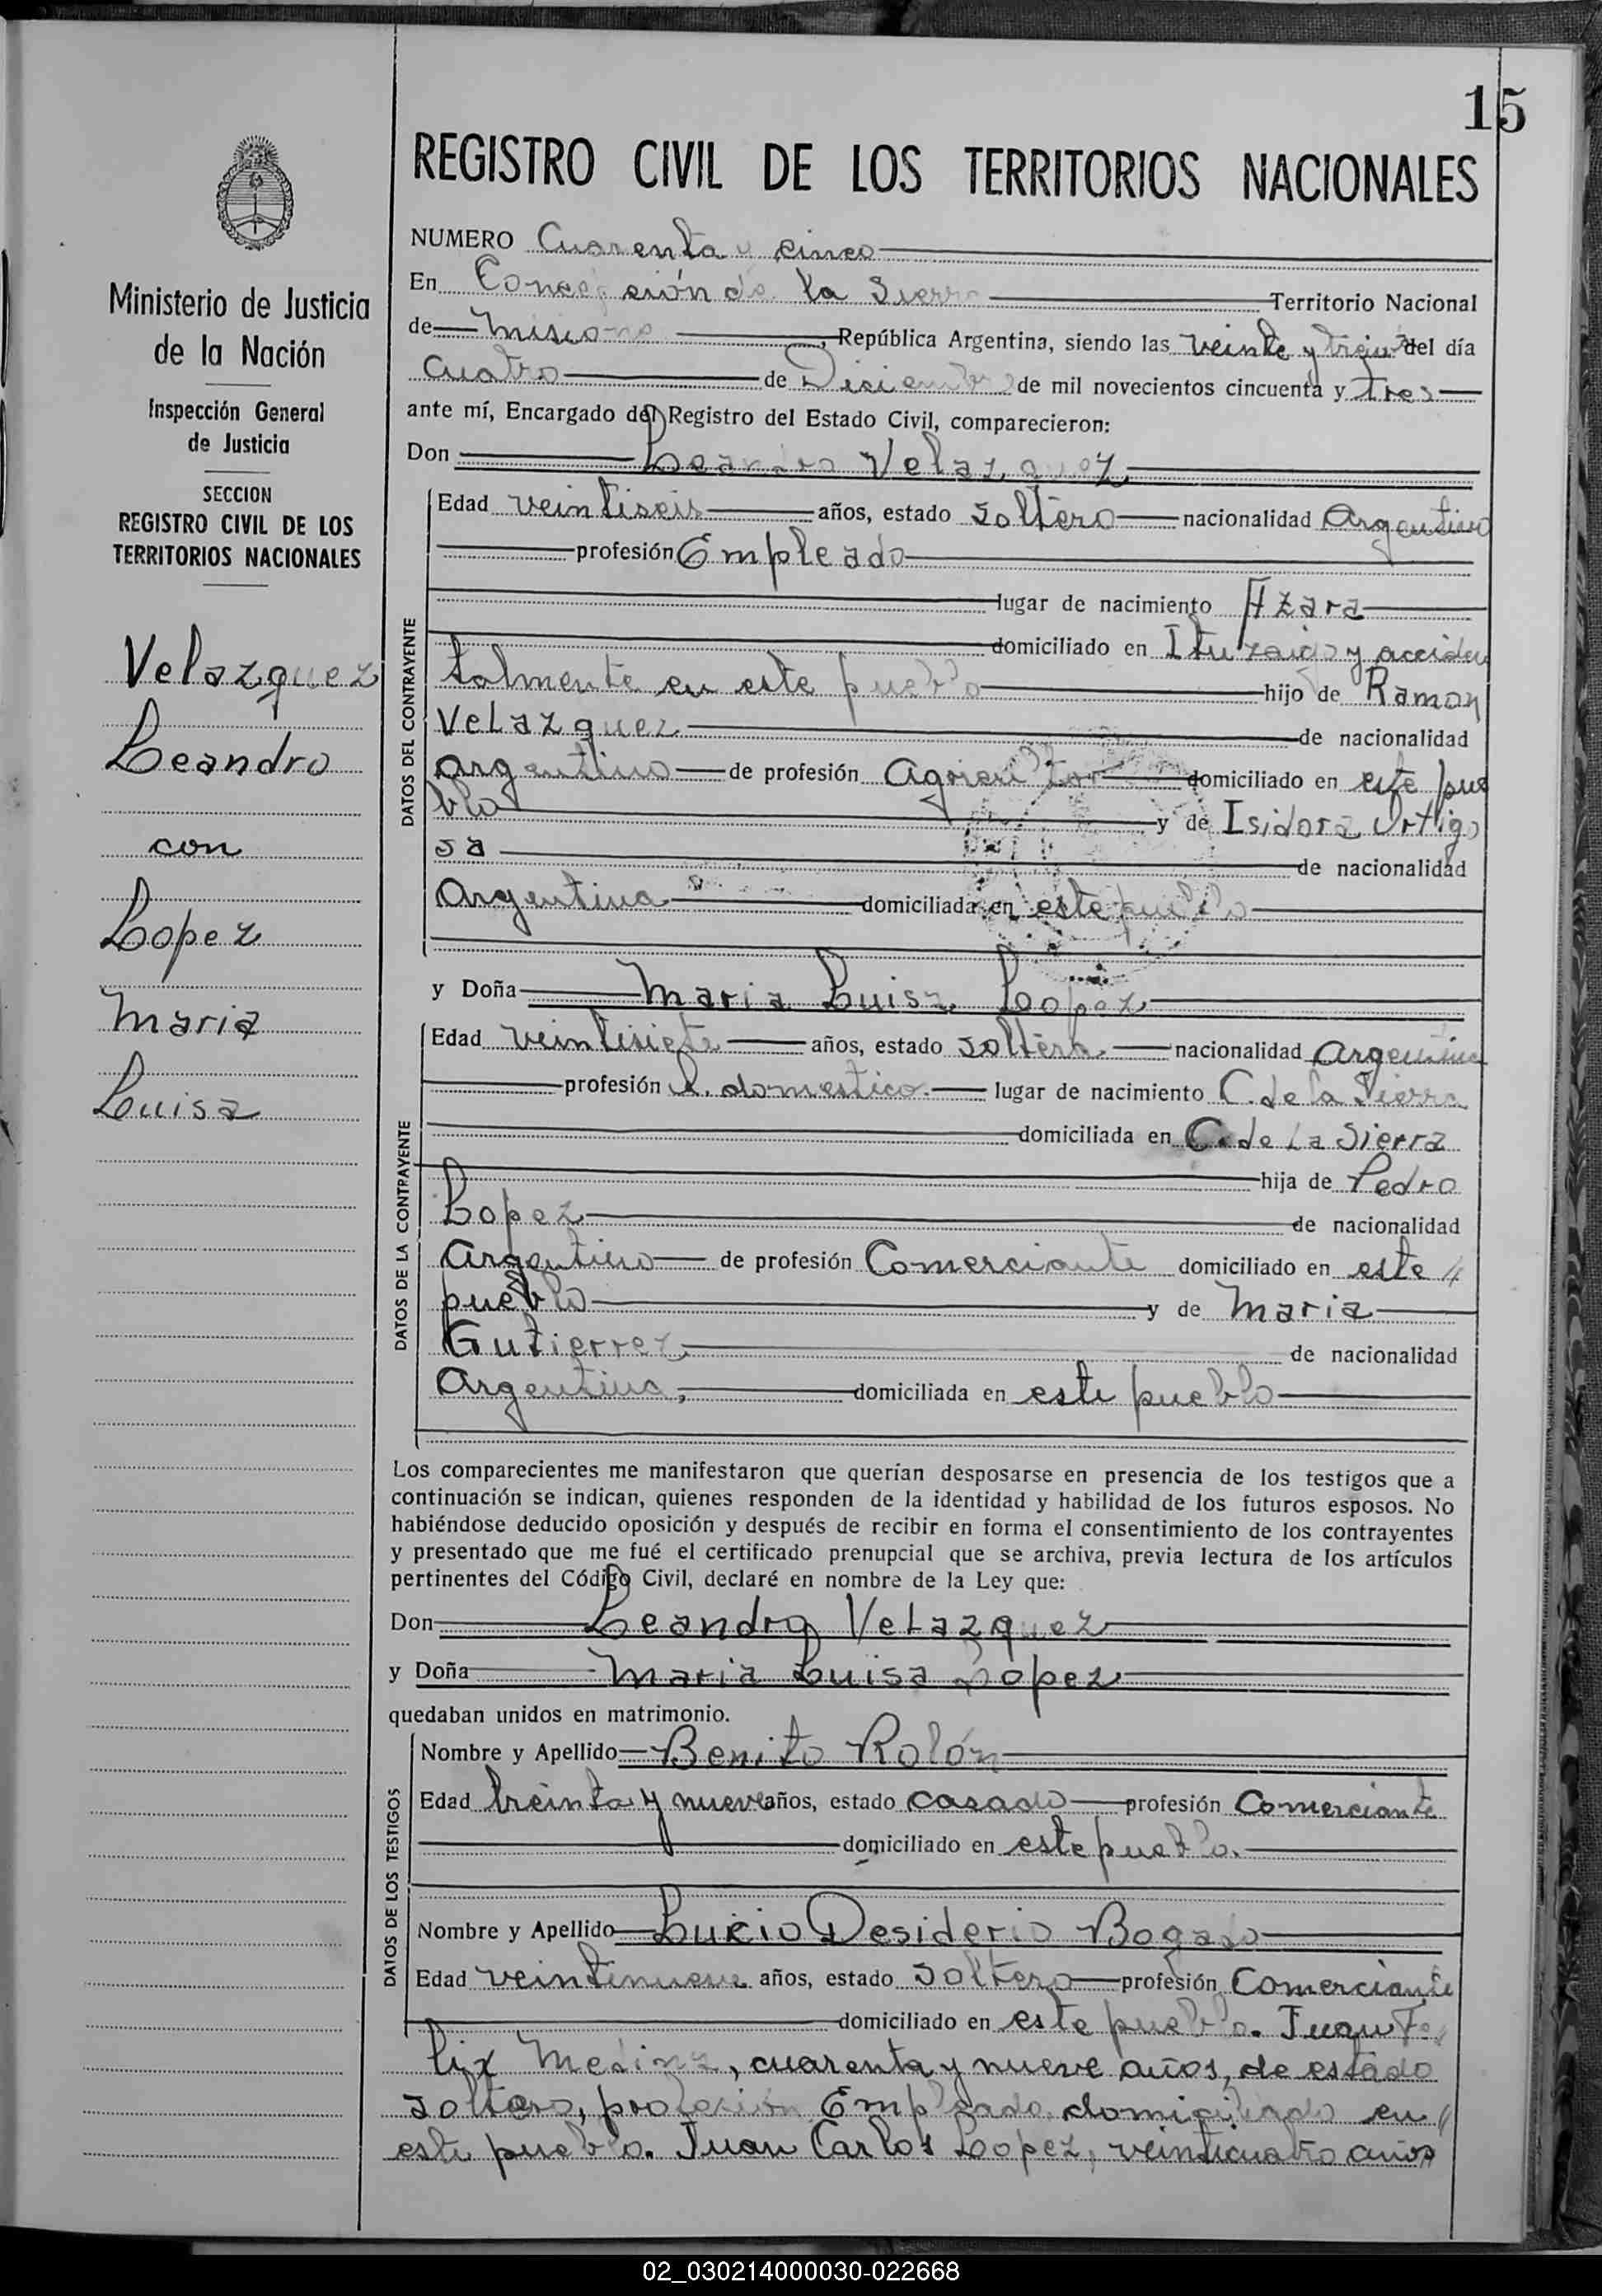 15
REGISTRO CIVIL DE LOS TERRITORIOS NACIONALES
Ministerio de Justicia
de la Nación
Inspección General
de Justicia
SECCION
REGISTRO CIVIL DE LOS
TERRITORIOS NACIONALES
Velazquez
Leandro
con
Lopez
Maria
Luisa
NUMERO Cuarenta y cinco
En Concepción de la Sierra Territorio Nacional
de Misiones, República Argentina, siendo las veinte y treinta del día
Cuatro de Diciembre de mil novecientos cincuenta y tres
ante mí, Encargado del Registro del Estado Civil, comparecieron:
Don Leandro Velazquez
DATOS DEL CONTRAYENTE
Edad veintiseis años, estado soltero nacionalidad Argentino
profesión Empleado
lugar de nacimiento Azara
domiciliado en Ituzaigo y acciden
talmente en este pueblo hijo de Ramon
Velazquez de nacionalidad
Argentino de profesión Agricultor domiciliado en este pue
blo y de Isidora Ortigo
sa de nacionalidad
Argentina domiciliada en este pueblo
y Doña Maria Luisa Lopez
DATOS DE LA CONTRAYENTE
Edad veintisiete años, estado soltera nacionalidad Argentina
profesión Q. domestico. lugar de nacimiento C. de la Sierra
domiciliada en C. de La Sierra
hija de Pedro
Lopez de nacionalidad
Argentino de profesión Comerciante domiciliado en este //
pueblo y de Maria
Gutierrez de nacionalidad
Argentina, domiciliada en este pueblo
Los comparecientes me manifestaron que querían desposarse en presencia de los testigos que a
continuación se indican, quienes responden de la identidad y habilidad de los futuros esposos. No
habiéndose deducido oposición y después de recibir en forma el consentimiento de los contrayentes
y presentado que me fué el certificado prenupcial que se archiva, previa lectura de los artículos
pertinentes del Código Civil, declaré en nombre de la Ley que:
Don Leandro Velazquez
y Doña Maria Luisa Lopez
quedaban unidos en matrimonio.
DATOS DE LOS TESTIGOS
Nombre y Apellido Benito Rolón
Edad treinta y nueve años, estado casado profesión Comerciante
domiciliado en este pueblo.
Nombre y Apellido Lucio Desiderio Bogado
Edad veintinueve años, estado soltero profesión Comerciante
domiciliado en este pueblo. Juan Fe//
lix Medina, cuarenta y nueve años, de estado
soltero, profesión Empleado domiciliado en //
este pueblo. Juan Carlos Lopez, veinticuatro años
02_030214000030-022668